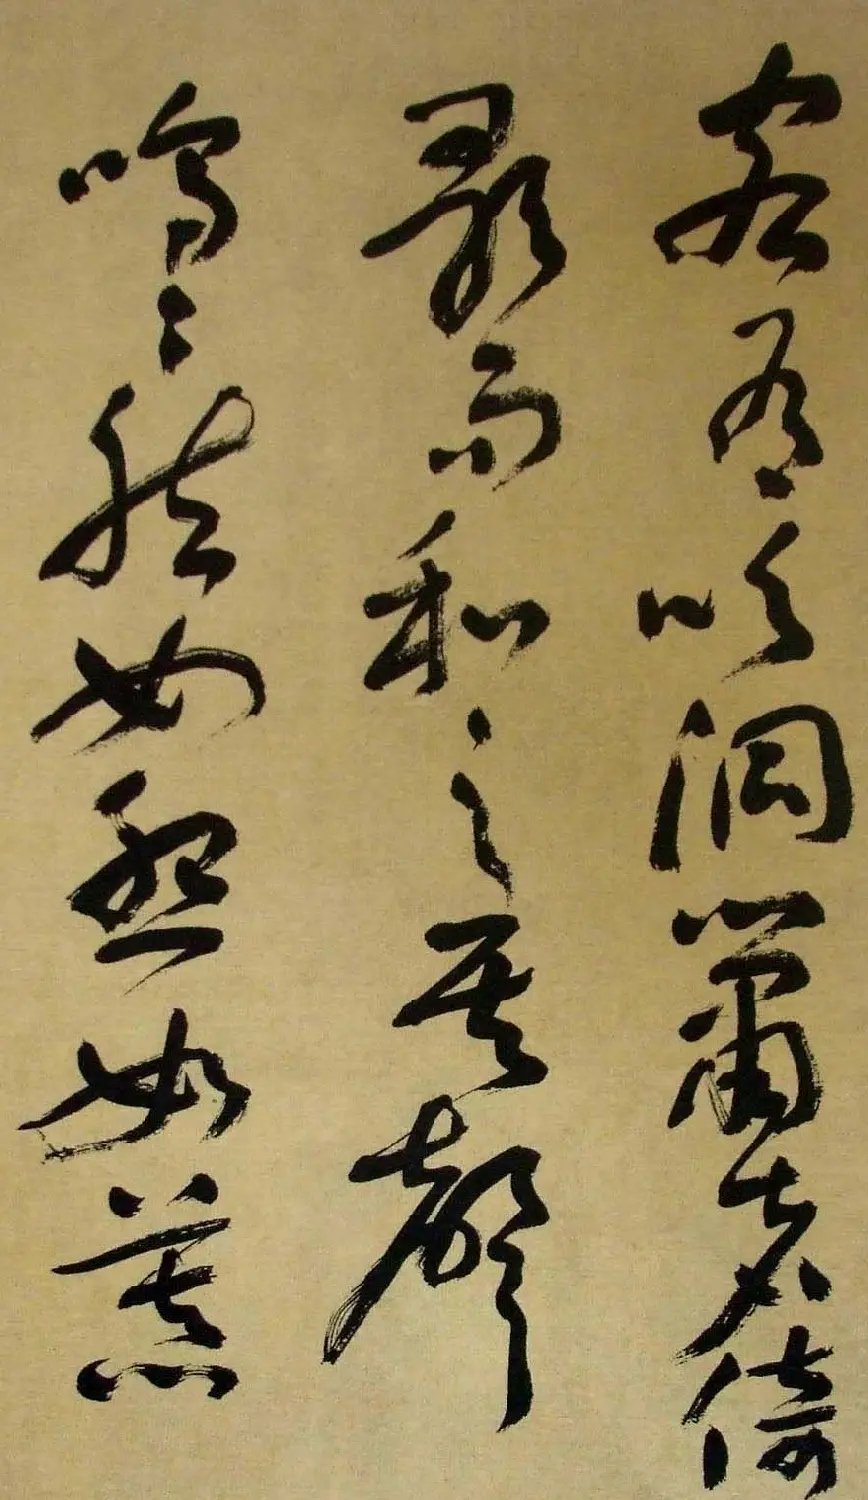 客有吹洞簫者倚
歌而和之其聲
嗚〻然如怨如慕